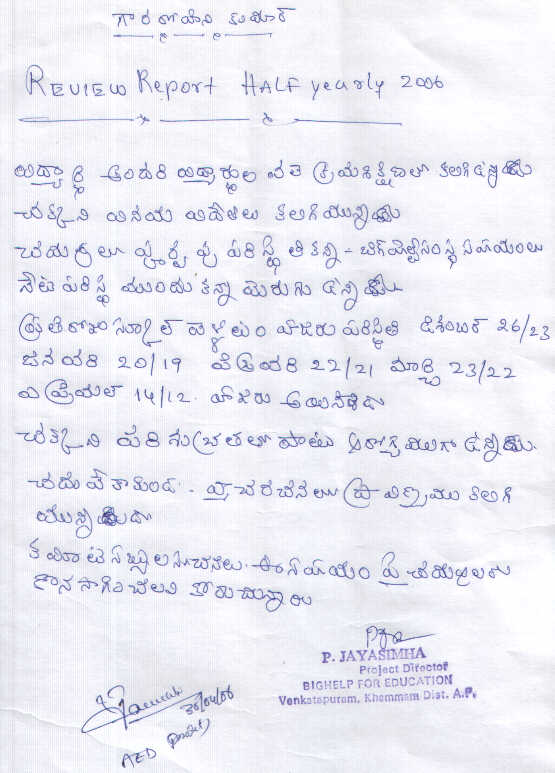 గారబోయిన కుమార్
REVIEW Report HALF yearly 2006
విద్యార్థి అందరి విద్యార్థుల వలె క్రమశిక్షణలో కలిగి ఉన్నాడు
చక్కని వినయ విధేతలు కలిగియున్నాడు
చదువులు పూర్వపు పరిస్థితి కన్నా - బిగ్ హెల్ప్ సంస్థ సహాయంలు
నేటి పరిస్థి ముందు కన్నా మెరుగు ఉన్నాడు.
ప్రతిరోజు స్కూల్ వెళ్లటం హాజరు పరిస్థితి డిశంబర్ 26/23
జనవరి 20/19 ఫిబ్రవరి 22/21 మార్చి 23/22
ఏప్రియల్ 14/12. హాజరు అయినాడు
చక్కని పరిశుభ్రతలో పాటు ఆరోగ్యముగా ఉన్నాడు.
చదువే కాకుండ. వ్రాచరచనలు ప్రావిణ్యము కలిగి
యున్నాడు
కమిటి సభ్యుల సూచనలు. ఈ సహాయం పై చదువులకు
కొనసాగించేలని కోరుచున్నారు
P. JAYASIMHA
Project Director
BIGHELP FOR EDUCATION
Venkatapuram, Khammam Dist. A.P.
30/04/06
AED